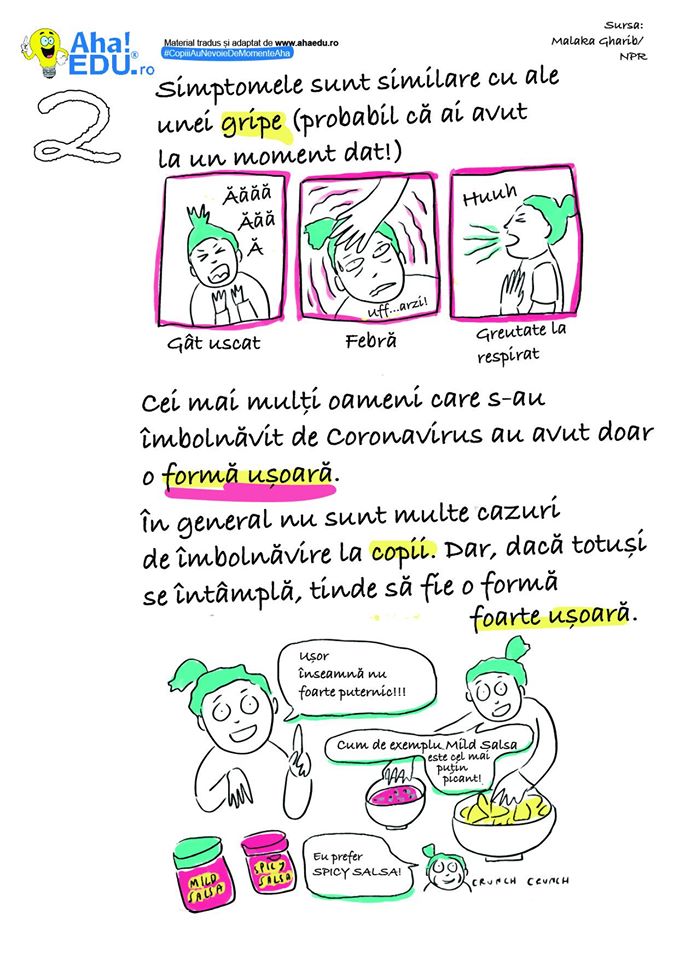 Aha!
EDU.ro
®
Material tradus și adaptat de www.ahaedu.ro
#CopiiiAuNevoieDeMomenteAha
Sursa:
Malaka Gharib/
NPR
2
Simptomele sunt similare cu ale
unei gripe (probabil că ai avut
la un moment dat!)
Ăăăă
Ăăă
Ă
uff...arzi!
Huuh
Gât uscat
Febră
Greutate la
respirat
Cei mai mulți oameni care s-au
îmbolnăvit de Coronavirus au avut doar
o formă ușoară.
În general nu sunt multe cazuri
de îmbolnăvire la copii. Dar, dacă totuși
se întâmplă, tinde să fie o formă
foarte ușoară.
Ușor
înseamnă nu
foarte puternic!!!
Cum de exemplu Mild Salsa
este cel mai
puțin
picant!
MILD
SALSA
SPICY
SALSA
Eu prefer
SPICY SALSA!
CRUNCH CRUNCH